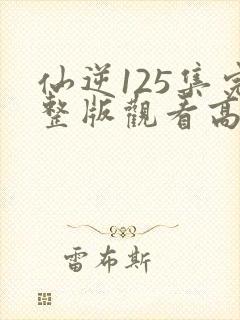 仙逆125集完
整版觀看高
雷布斯